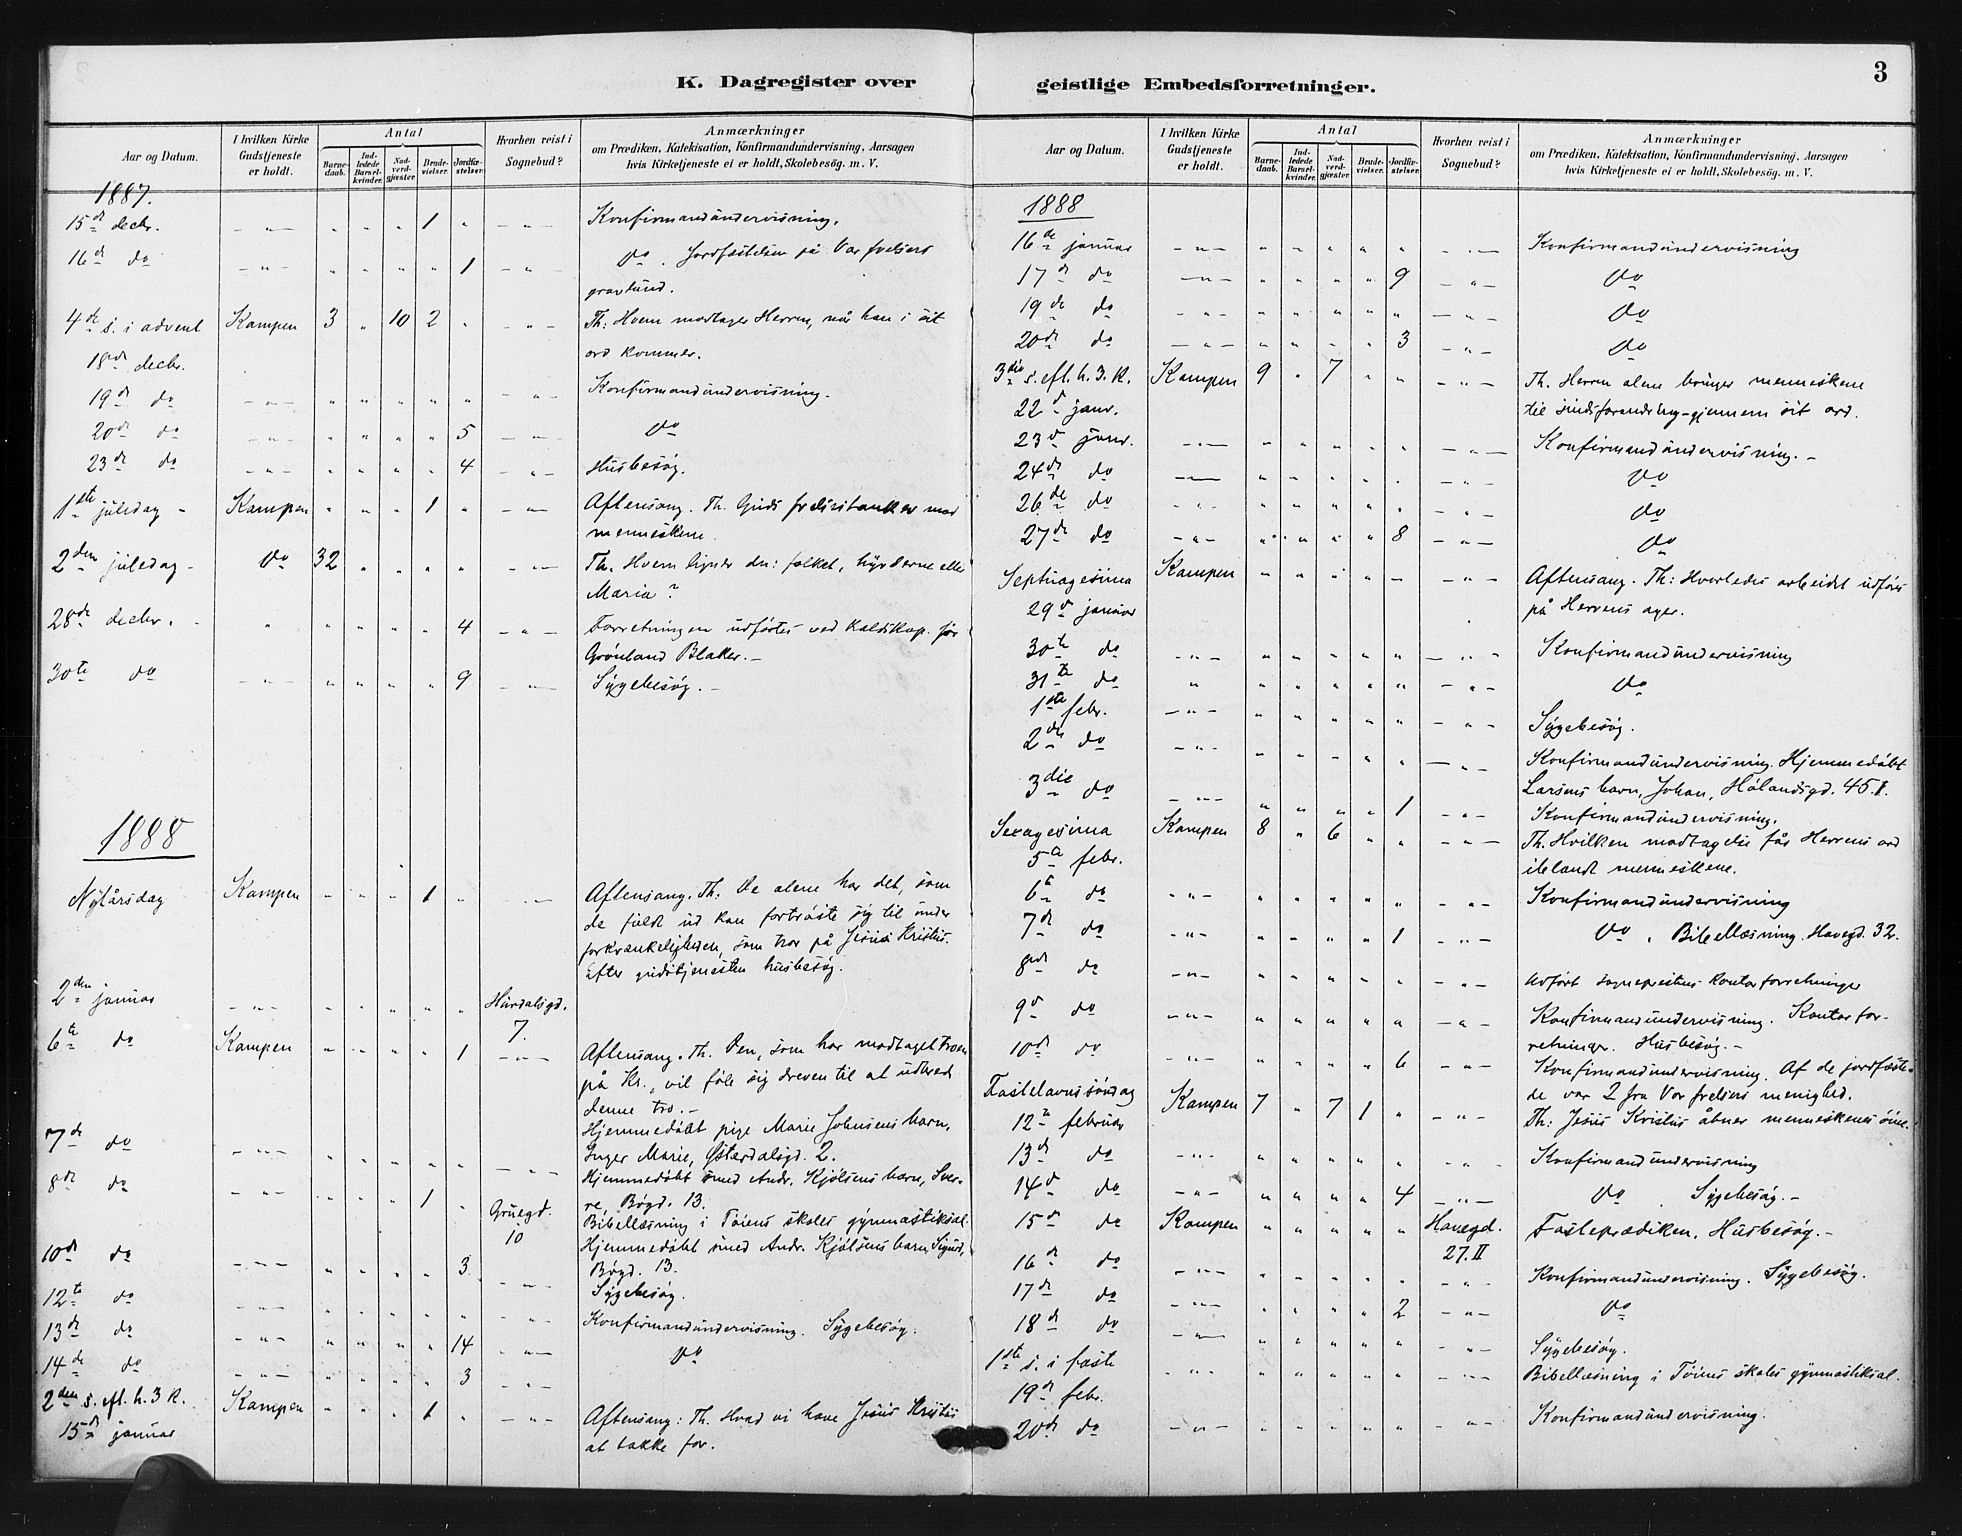 K. Dagregister over geistlige Embedsforretninger.
3
Aar og Datum.
I hvilken Kirke Gudstjeneste er holdt.
Antal
Barnedaab.
Indledede Barselkvinder.
Nadverdgjæster.
Brudevielser.
Jordfæstelser.
Hvorhen reist i Sognebud?
Anmærkninger
om Prædiken, Katekisation, Konfirmandundervisning, Aarsagen
hvis Kirketjeneste ei er holdt, Skolebesög. m. V.
1887.
15de decbr. - „ - „ „ „ 1 „ - „ - Konfirmandundervisning.
16de do - „ - „ „ „ „ 1 - „ - do. Jordfæstelsen på Vor frelsers
gravlund.
4de s. i advent Kampen 3 „ 10 2 „ - „ - Th: Hvem modtager Herren, når han i sit
ord kommer.
18de decbr.
19de do - „ - „ „ „ „ „ - „ - Konfirmandundervisning.
20de do - „ - „ „ „ „ 5 - „ - do
23de do - „ - „ „ „ „ 4 - „ - Husbesøg.
1ste juledag - Kampen „ „ „ 1 „ - „ - Aftensang. Th. Guds fredstanker mod
menneskene.
2den juledag - do 32 „ „ „ „ - „ - Th. Hvem ligner du: folket, hyrderne eller
Maria?
28de decbr. „ „ „ „ „ 4 - „ - Forretningen udførtes ved kaldskap. for
Grønland Blaker. -
30te do - „ - „ „ „ „ 9 - „ - Sygebesøg. -
1888
Nytårsdag Kampen „ „ „ 1 „ „ - Aftensang. Th. De alene har det, som
de fuldt ud kan fortrøste sig til under
forkrænkeligheden, som tror på Jesus Kristus.
Efter gudstjenesten husbesøg.
2den januar - „ - „ „ „ „ „ Hurdalsgd.
7.
6te do Kampen „ „ „ „ 1 - „ - Aftensang. Th. Den, som har modtaget troen
på Kr., vil føle sig dreven til at udbrede
denne tro. -
7de do - „ - „ „ „ „ „ - „ - Hjemmedøbt pige Marie Johnsens barn,
Inger Marie, Østerdalsgd. 2.
8de do - „ - „ „ „ 1 „ Gruegd.
10
Hjemmedøbt smed Andr. Kjølsens barn, Sver-
re, Bøgd. 13.
Bibellæsning i Tøiens skoles gymnastiksal.
10de do - „ - „ „ „ „ 3 - „ - Hjemmedøbt smed Andr. Kjølsens barn, Sigurd,
Bøgd. 13.
Sygebesøg.
12te do - „ - „ „ „ „ „ - „ - Konfirmandundervisning. Sygebesøg.
13de do - „ - „ „ „ „ 14 - „ - do
14de do - „ - „ „ „ „ 3 - „ -
2den s. eft. h. 3 K. Kampen „ „ „ 1 „ - „ - Aftensang: Th. Hvad vi have Jesus Kristus
15de januar at takke for.
Aar og Datum.
I hvilken Kirke Gudstjeneste er holdt.
Antal
Barnedaab.
Indledede Barselkvinder.
Nadverdgjæster.
Brudevielser.
Jordfæstelser.
Hvorhen reist i Sognebud?
Anmærkninger
om Prædiken, Katekisation, Konfirmandundervisning, Aarsagen
hvis Kirketjeneste ei er holdt, Skolebesög. m. V.
1888
16de januar - „ - „ „ „ „ „ - „ - Konfirmandundervisning
17de do - „ - „ „ „ „ 9 - „ - do
19de do - „ - „ „ „ „ „ - „ - do
20de do - „ - „ „ „ „ 3 - „ - do
3die s. eft. h. 3. K. Kampen 9 „ 7 „ „ - „ - Th. Herren alene bringer menneskene
22de janr. til sindsforandring gjennem sit ord.
23de janr. - „ - „ „ „ „ „ - „ - Konfirmandundervisning. -
24de do - „ - „ „ „ „ „ - „ - do
26de do „ „ „ „ „ „ „ - „ - do
27de do - „ - „ „ „ „ 8 - „ - do
Septuagesima Kampen „ „ „ „ - - „ - Aftensang. Th: Hvorledes arbeidet udføres
29de januar på Herrens ager.
30te do - „ - „ „ „ „ „ - „ - Konfirmandundervisning
31te do „ „ „ „ „ „ - „ - do
1ste febr. - „ - „ „ „ „ „ - „ - Sygebesøg.
2den do - „ - „ „ „ „ „ - „ - Konfirmandundervisning. Hjemmedøbt
Larsens barn, Johan, Hølandsgd. 45.I.
3die do - „ - „ „ „ „ 1 - „ - Konfirmandundervisning.
Sexagesima Kampen 8 „ 6 „ „ - „ - Th. Hvilken modtagelse får Herrens ord
5te febr. iblandt menneskene.
6te do - „ - „ „ „ „ „ - „ - Konfirmandundervisning
7de do - „ - „ „ „ „ 1 - „ - do. Bibellæsning. Havegd. 32.
8de do - „ - „ „ „ „ „ - „ - Udført sognepræstens kontorforretninger
9de do - „ - „ „ „ „ „ - „ - Konfirmandundervisning. Kontorfor-
retninger. Husbesøg. -
10de do - „ - „ „ „ „ 6 - „ - Konfirmandundervisning. Af de jordfæste-
de var 2 fra Vor frelsers menighed.
Fastelavnssøndag Kampen 7 „ 7 1 „ - „ - Th: Jesus Kristus åbner menneskenes øine.
12te februar
13de do - „ - „ „ „ „ „ - „ - Konfirmandundervisning
14de do - „ - „ „ „ „ 4 - „ - do. Sygebesøg. -
15de do Kampen „ „ „ „ „ Havegd.
27.II
Fasteprædiken. Husbesøg. -
16de do - „ - „ „ „ „ „ - „ - Konfirmandundervisning. Sygebesøg.
17de do - „ - „ „ „ „ 2 - „ - do
18de do - „ - „ „ „ „ „ - „ - Sygebesøg.
1ste s. i faste - „ - „ „ „ „ „ - „ - Bibellæsning i Tøiens skoles gymnastiksal.
19de febr.
20de do - „ - „ „ „ „ „ „ - Konfirmandundervisning.